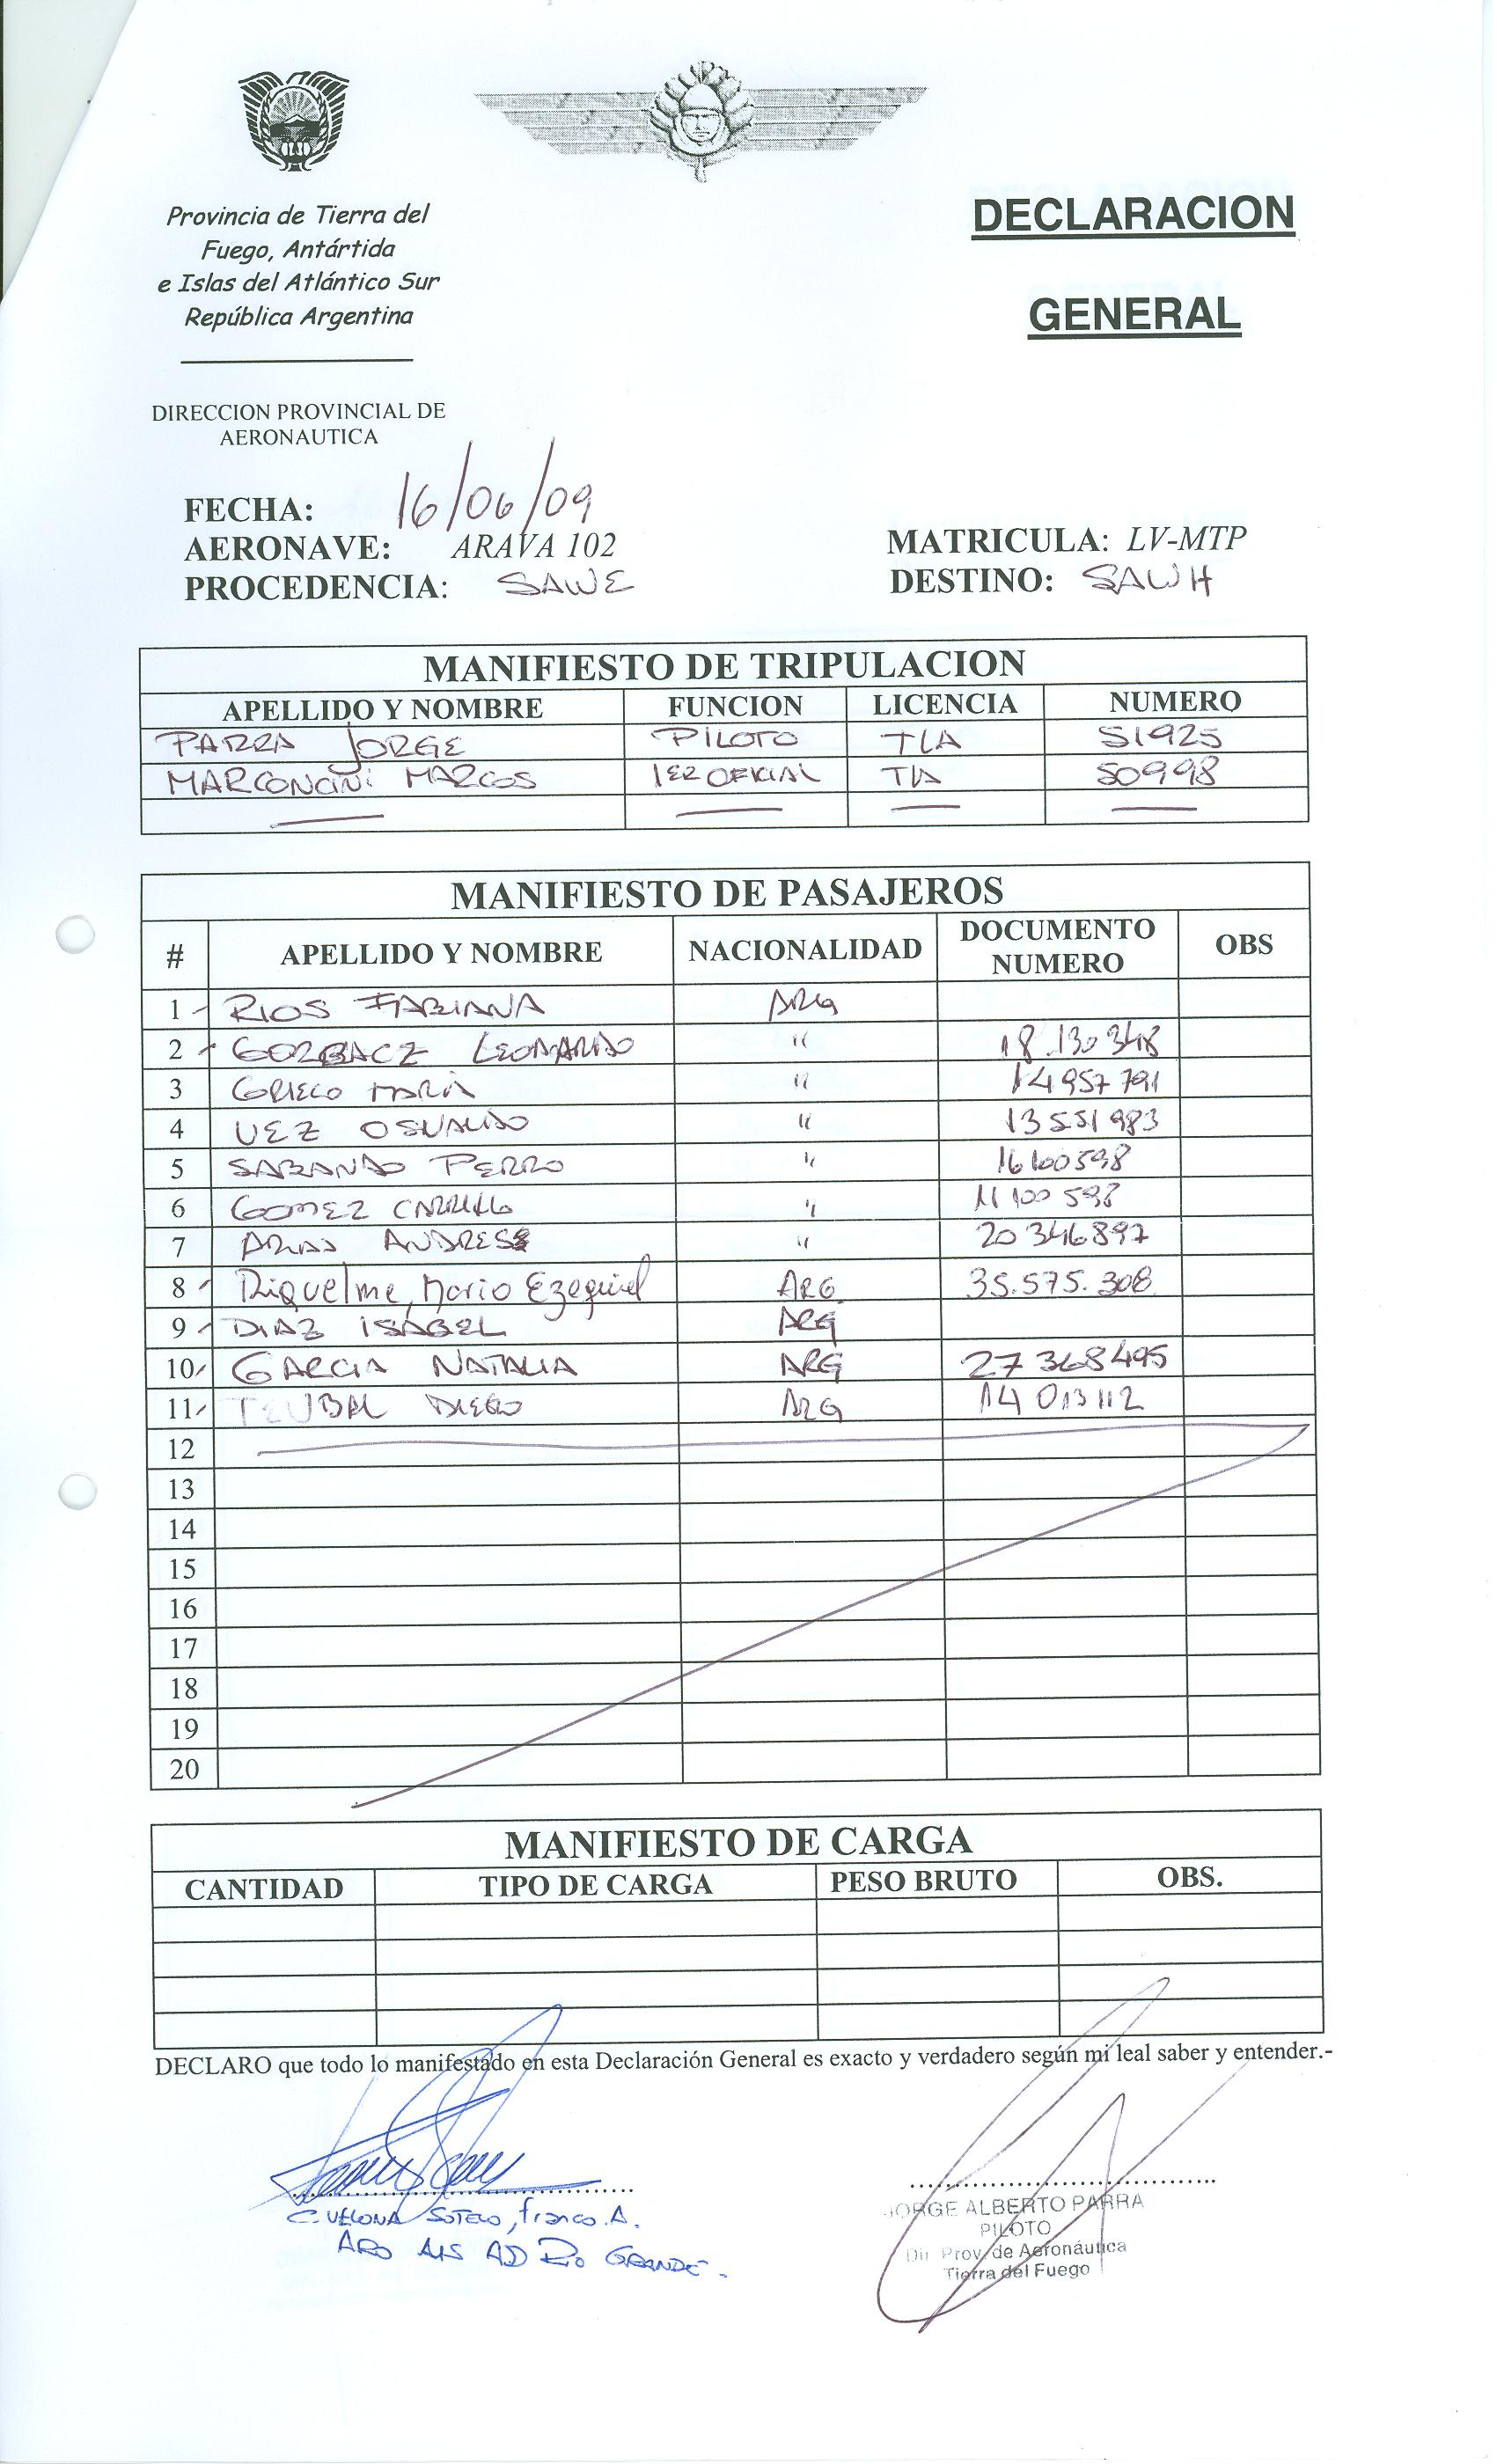 Provincia de Tierra del
Fuego, Antártida
e Islas del Atlántico Sur
República Argentina
DECLARACION
GENERAL
DIRECCION PROVINCIAL DE
AERONAUTICA
FECHA: 16/06/09
AERONAVE: ARAVA 102 MATRICULA: LV-MTP
PROCEDENCIA: SAWE DESTINO: SAWH
MANIFIESTO DE TRIPULACION
APELLIDO Y NOMBRE FUNCION LICENCIA NUMERO
PARRA JORGE PILOTO TLA 51925
MARCONCINI MARCOS 1ER OFICIAL TLA 50998
MANIFIESTO DE PASAJEROS
# APELLIDO Y NOMBRE NACIONALIDAD DOCUMENTO NUMERO OBS
1 RIOS FABIANA ARG
2 GORBACZ LEONARDO " 18.130348
3 GRIECO MARIA " 14957791
4 OSVALDO " 13551983
5 SABANDO " 16100598
6 GOMEZ CARRILLO " 11100598
7 ARIAS ANDRES " 20346897
8 Riquelme, Mario Ezequiel ARG 35.575.308
9 DIAZ ISABEL ARG
10 GARCIA NATALIA ARG 27368495
11 TEUBAL DIEGO ARG 14013112
12
13
14
15
16
17
18
19
20
MANIFIESTO DE CARGA
CANTIDAD TIPO DE CARGA PESO BRUTO OBS.
DECLARO que todo lo manifestado en esta Declaración General es exacto y verdadero según mi leal saber y entender.-
SOTELO, Franco A.
ARO AIS AD RIO GRANDE.-
JORGE ALBERTO PARRA
PILOTO
Dir. Prov. de Aeronáutica
Tierra del Fuego